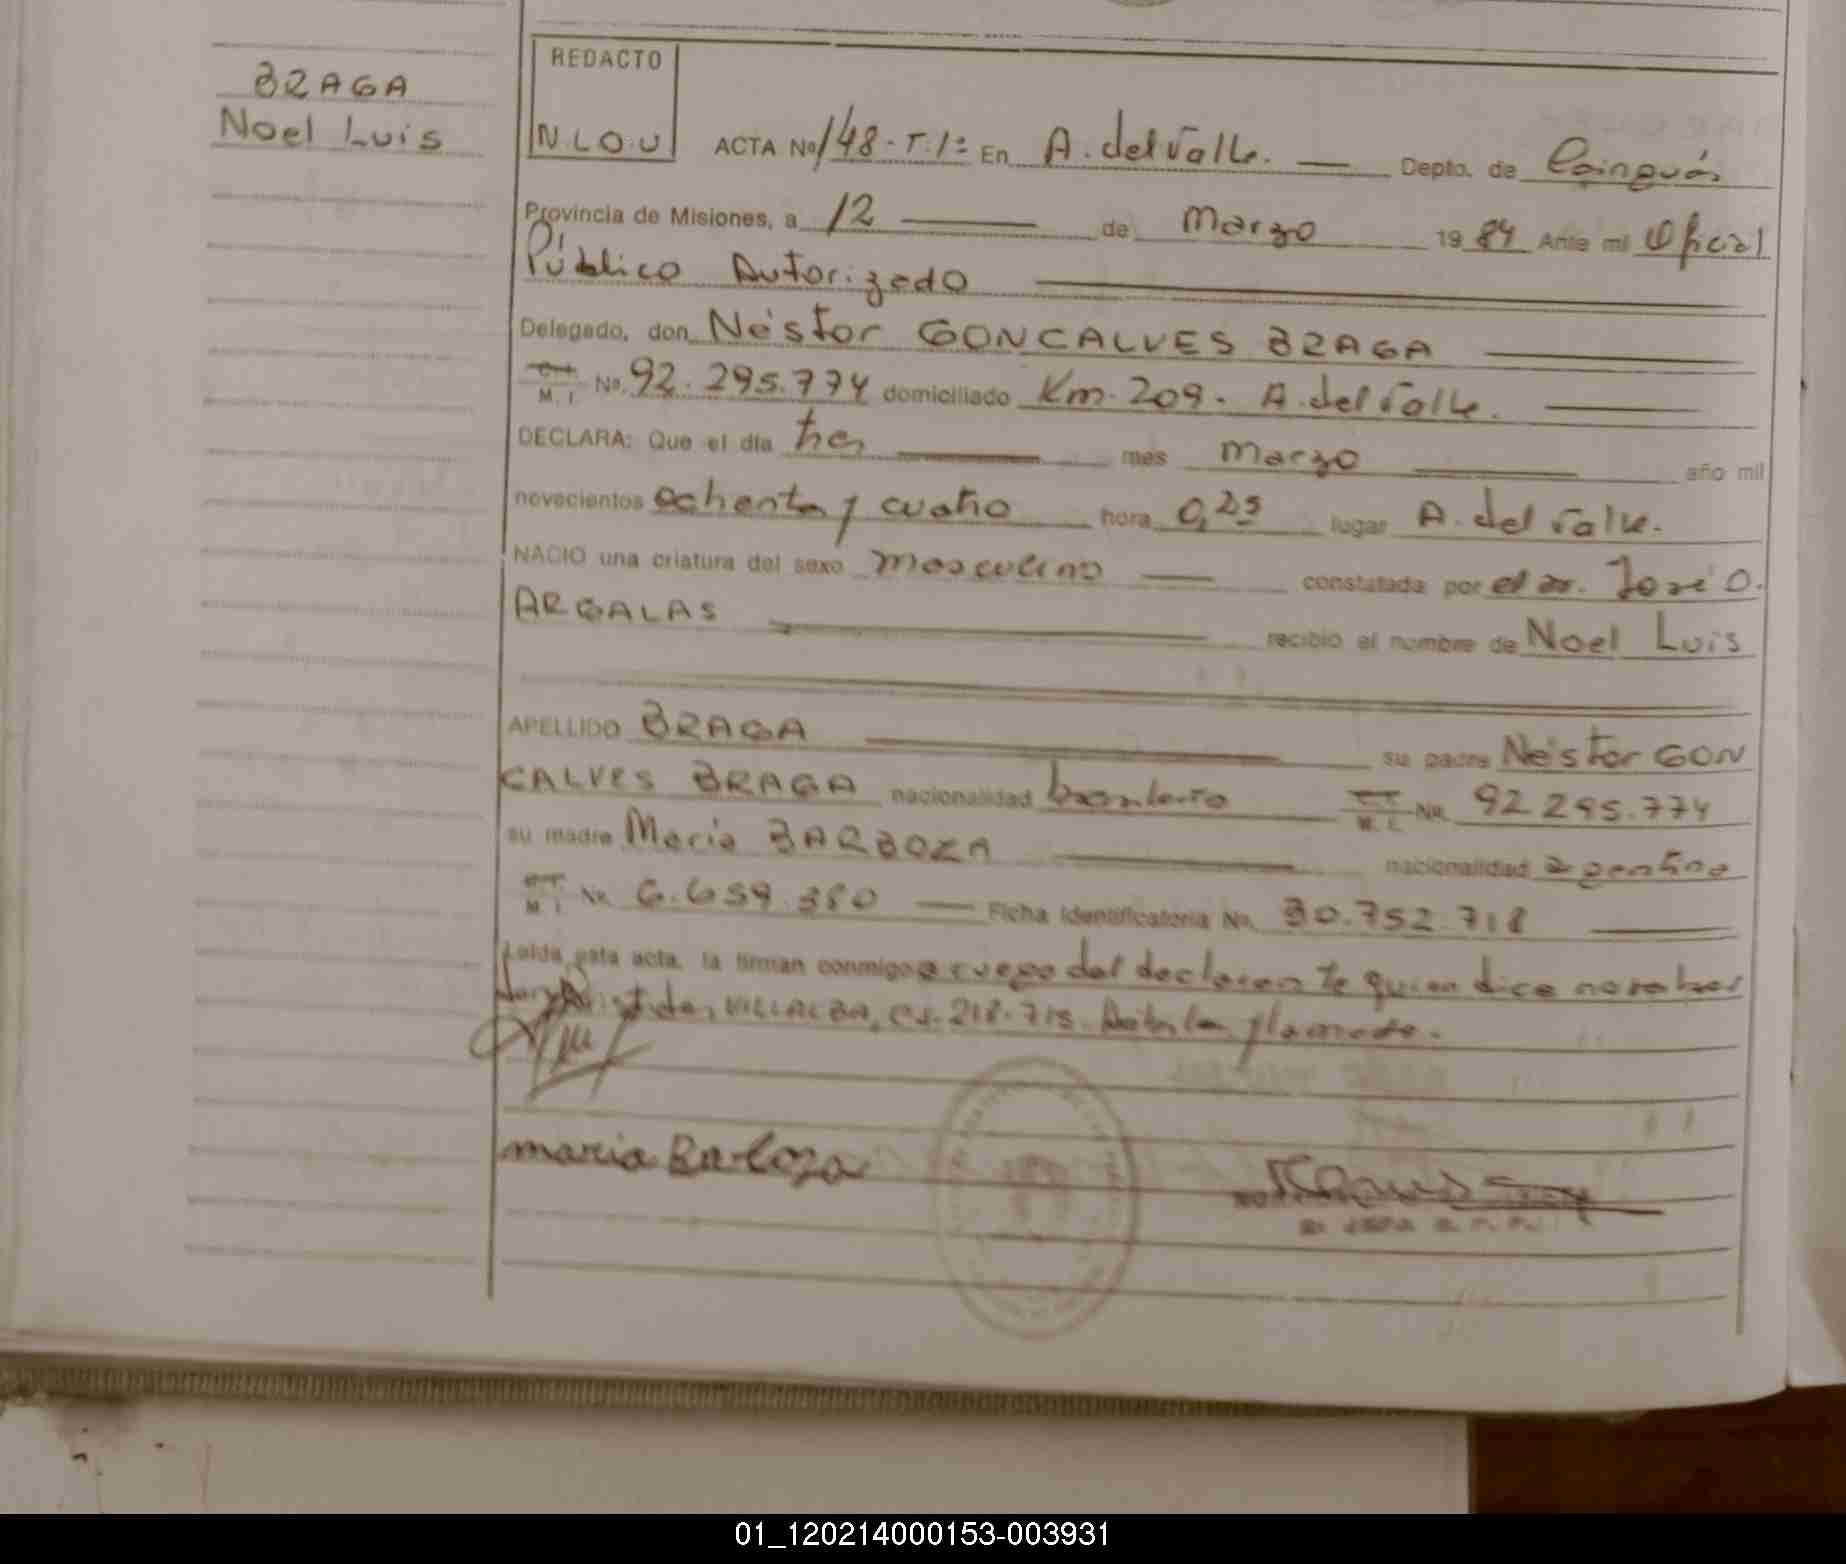 BRAGA
Noel Luis
REDACTO
N.L.O.U
ACTA Nº 148-T.1º En A. del Valle. — Depto. de Cainguás
Provincia de Misiones, a 12 — de Marzo 1984 Ante mi Oficial
Público Autorizado
Delegado, don Néstor GONCALVES BRAGA
M. I. Nº 92.295.774 domiciliado Km. 209. A. del Valle.
DECLARA: Que el día tres mes Marzo año mil
novecientos ochenta y cuatro hora 0,25 lugar A. del Valle.
NACIO una criatura del sexo masculino — constatada por el Dr. José O.
ARGALAS recibió el nombre de Noel Luis
APELLIDO BRAGA su padre Néstor GON
CALVES BRAGA nacionalidad brasilero M. I. Nº 92 295.774
su madre María BARBOZA nacionalidad argentina
M. I. Nº 6.659.380 — Ficha Identificatoria Nº 30.752.718
Leída esta acta, la firman conmigo a ruego del declarante quien dice nombrar
VILLALBA, C.I. 218.715.
maria Barboza
01_120214000153-003931